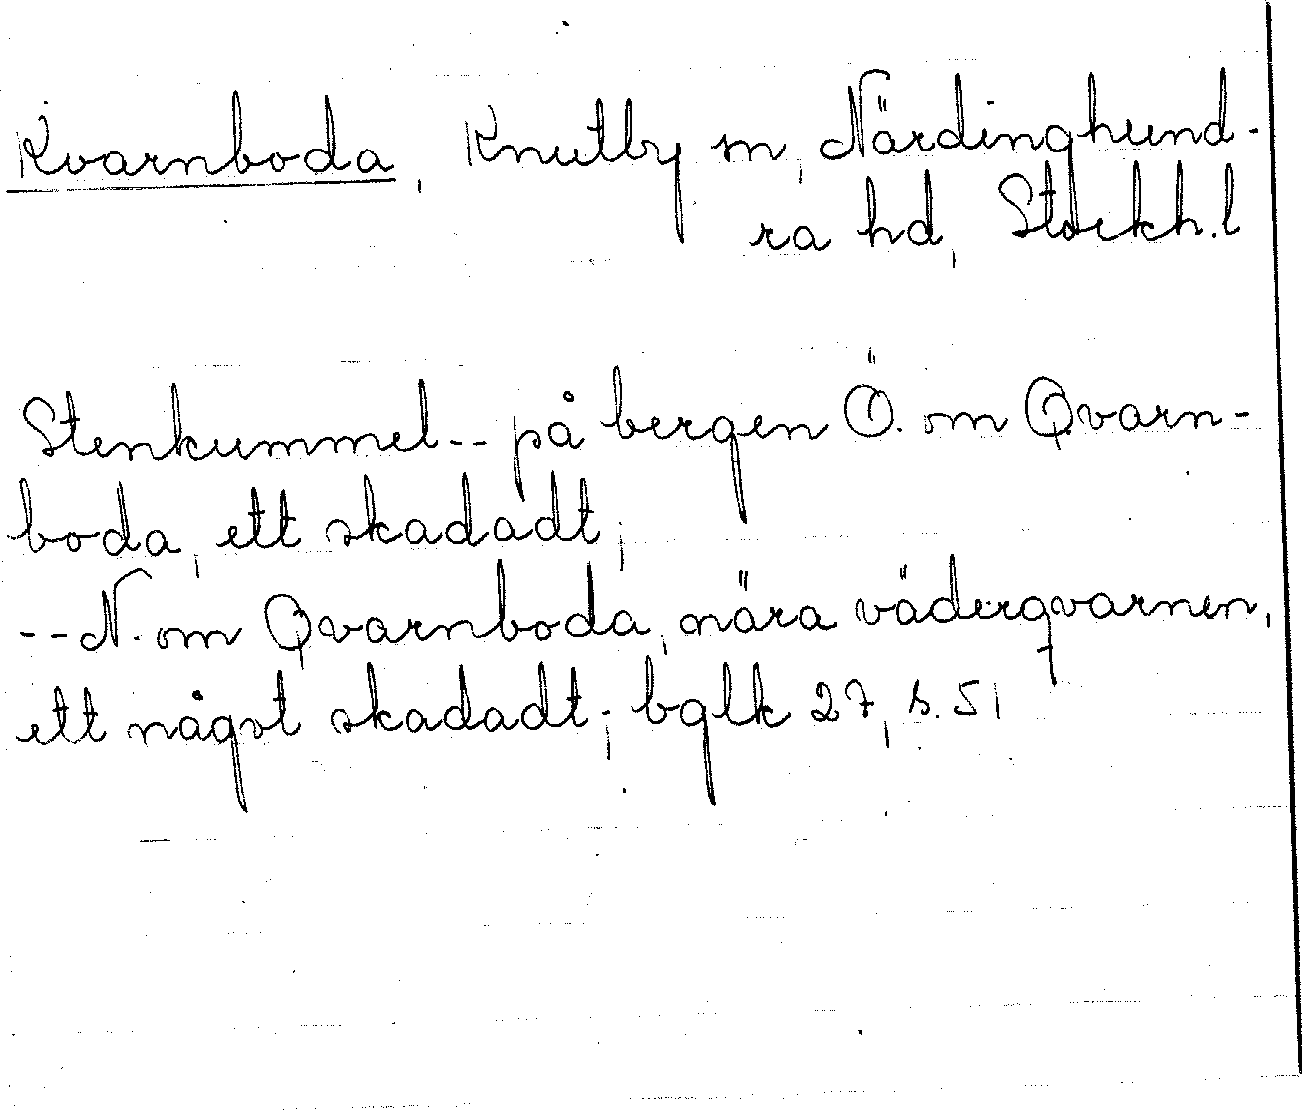 Kvarnboda, Knutby sn, Närdinghund-
ra hd, Stockh.l
Stenkummel-- på bergen Ö. om Qvarn-
boda, ett skadadt;
--N. om Qvarnboda, nära väderqvarnen,
ett något skadadt; bglk 27, s. 51